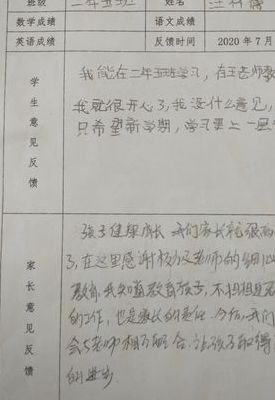 班级 二年五班 姓名
数学成绩 语文成绩
英语成绩 反馈时间 2020年7月
学生意见反馈
我能在二年五班学习,有王老师教
我就很开心了,我没什么意见,
只希望新学期,学习要上一
家长意见反馈
孩子健康成长 我们家长就很高
了,在这里感谢校及老师的细心
教育,我知道教育孩子,不担担是
的工作,也是家长的责任 今后,我们
会与老师相互配合 让孩子取得
的进步